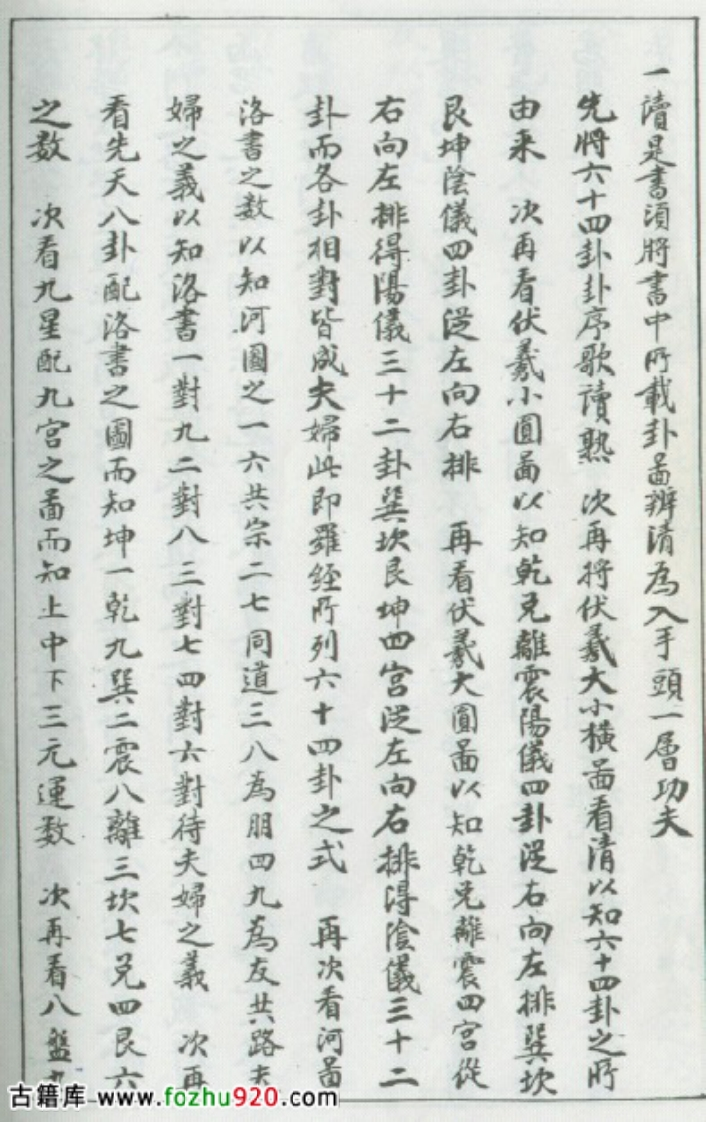 一讀是書須將書中所載卦圖辨清為入手頭一層功夫
先將六十四卦卦序歌讀熟 次再將伏羲大小橫圖看清以知六十四卦之所
由来 次再看伏羲小圓圖以知乾兌離震陽儀四卦從右向左排巽坎
艮坤陰儀四卦從左向右排 再看伏羲大圓圖以知乾兌離震四宮從
右向左排得陽儀三十二卦巽坎艮坤四宮從左向右排得陰儀三十二
卦而各卦相對皆成夫婦此即羅經所列六十四卦之式 再次看河圖
洛書之數以知河圖之一六共宗二七同道三八為朋四九為友共路夫
婦之義以知洛書一對九二對八三對七四對六對待夫婦之義 次再
看先天八卦配洛書之圖而知坤一乾九巽二震八離三坎七兌四艮六
之数 次看九星配九宮之圖而知上中下三元運数 次再看八盤
古籍库 www.fozhu920.com